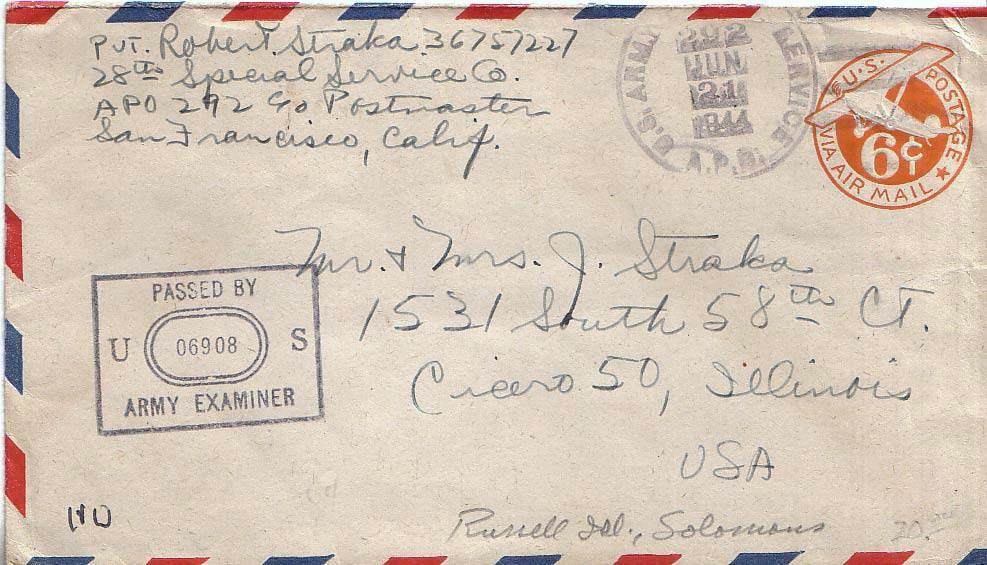 Pvt. Robert Straka 36757227
28th Special Service Co.
APO 292 c/o Postmaster
San Francisco, Calif.
U.S. ARMY SERVICE
292
JUN
21
1944
A.P.O.
U.S. POSTAGE
6¢
VIA AIR MAIL
Mr. & Mrs. J. Straka
1531 South 58th CT.
Cicero 50, Illinois
USA
PASSED BY
U 06908 S
ARMY EXAMINER
Russell Isl., Solomons